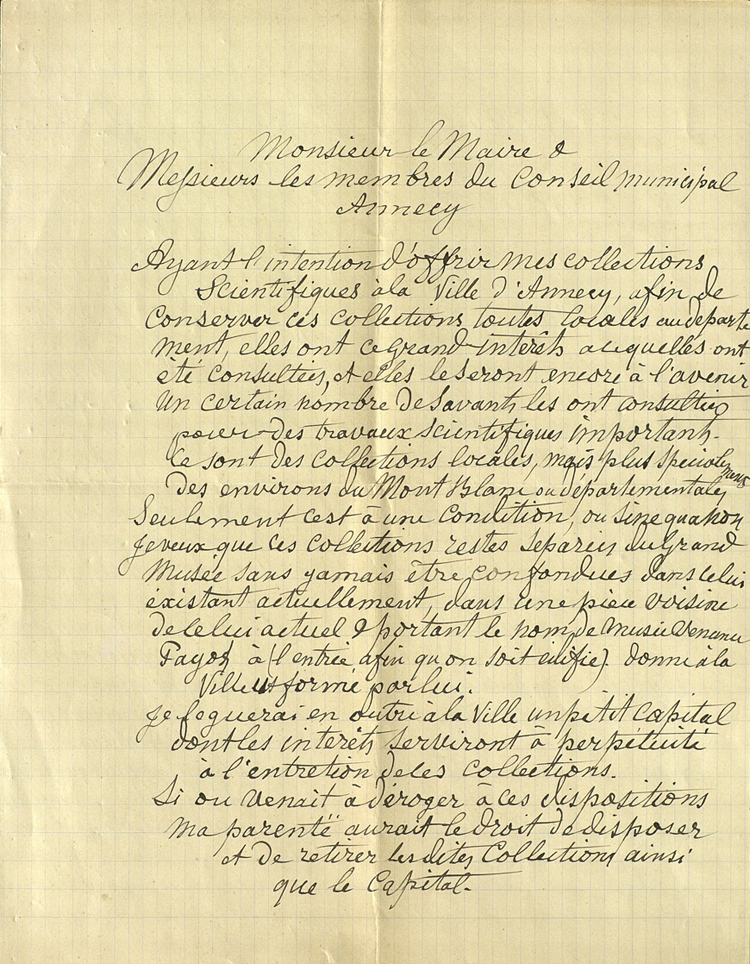 Monsieur le Maire &
Messieurs les membres du Conseil municipal
Annecy
Ayant l'intention d'offrir mes collections
Scientifiques à la Ville d'Annecy, afin de
Conserver ces collections toutes locales au départe
ment, elles ont ce grand intérêts auquelles ont
été consultées, et elles le seront encore à l'avenir
un certain nombre de Savants les ont consultées
pour des travaux scientifiques important.
Ce sont des collections locales, mais plus spécialement
des environs du Mont Blanc ou départementales
Seulement c'est à une condition, ou sine qua non
Je veux que ces collections restes séparées du Grand
Musée sans jamais être confondues dans celui
éxistant actuellement, dans une pièce voisine
de celui actuel & portant le nom de Musée Venance
Payot à (l'entrée afin qu'on soit édifié). donné à la
Ville et formé par lui.
Je leguerai en outre à la Ville un petit Capital
dont les intérêts serviront à perpétuité
à l'entretion de ces collections.
Si on venait à déroger à ces dispositions
ma parenté aurait le droit de disposer
et de retirer les dites Collections ainsi
que le Capital.